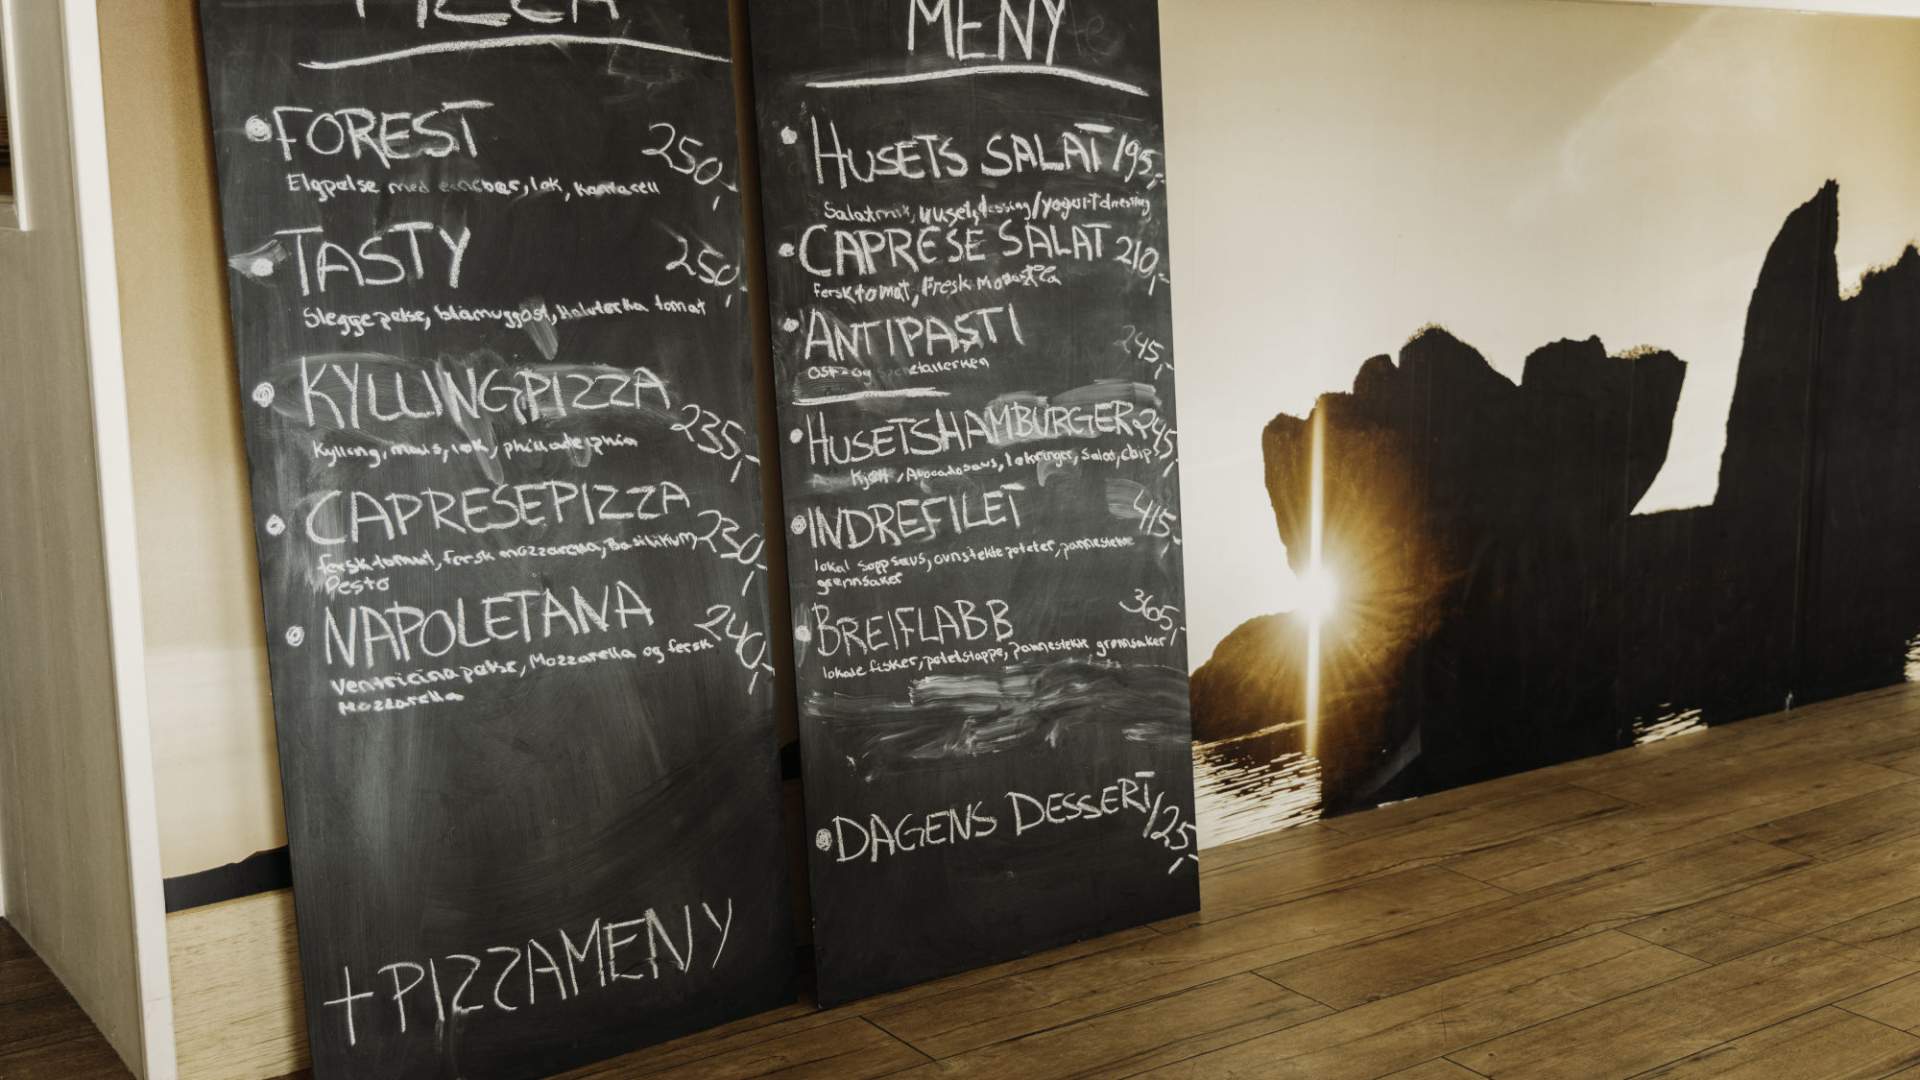 PIZZA
FOREST 250,-
Elgpølse med einebær, løk, kantarell
TASTY 250,-
Sleggepølse, blåmuggost, tomat
KYLLINGPIZZA 235,-
Kylling, mais, løk, philladelphia
CAPRESEPIZZA 230,-
fersk tomat, fersk mozzarella, Basilikum,
Pesto
NAPOLETANA 240,-
Ventricina pølse, Mozzarella og fersk
Mozzarella
+ PIZZAMENY
MENY
HUSETS SALAT 195,-
Salatmix, dressing/yogurtdressing
CAPRESE SALAT 210,-
fersk tomat, Fresk
ANTIPASTI 245,-
Ost- og
HUSETSHAMBURGER 245,-
Kjøtt, Avocadosaus, løkringer, Salat, chips
INDREFILET 415,-
lokal soppsaus, ovnstekte poteter, pannestekte
grønnsaker
BREIFLABB 365,-
lokale fisker, potetstappe, pannestekte grønnsaker
DAGENS DESSERT 125,-